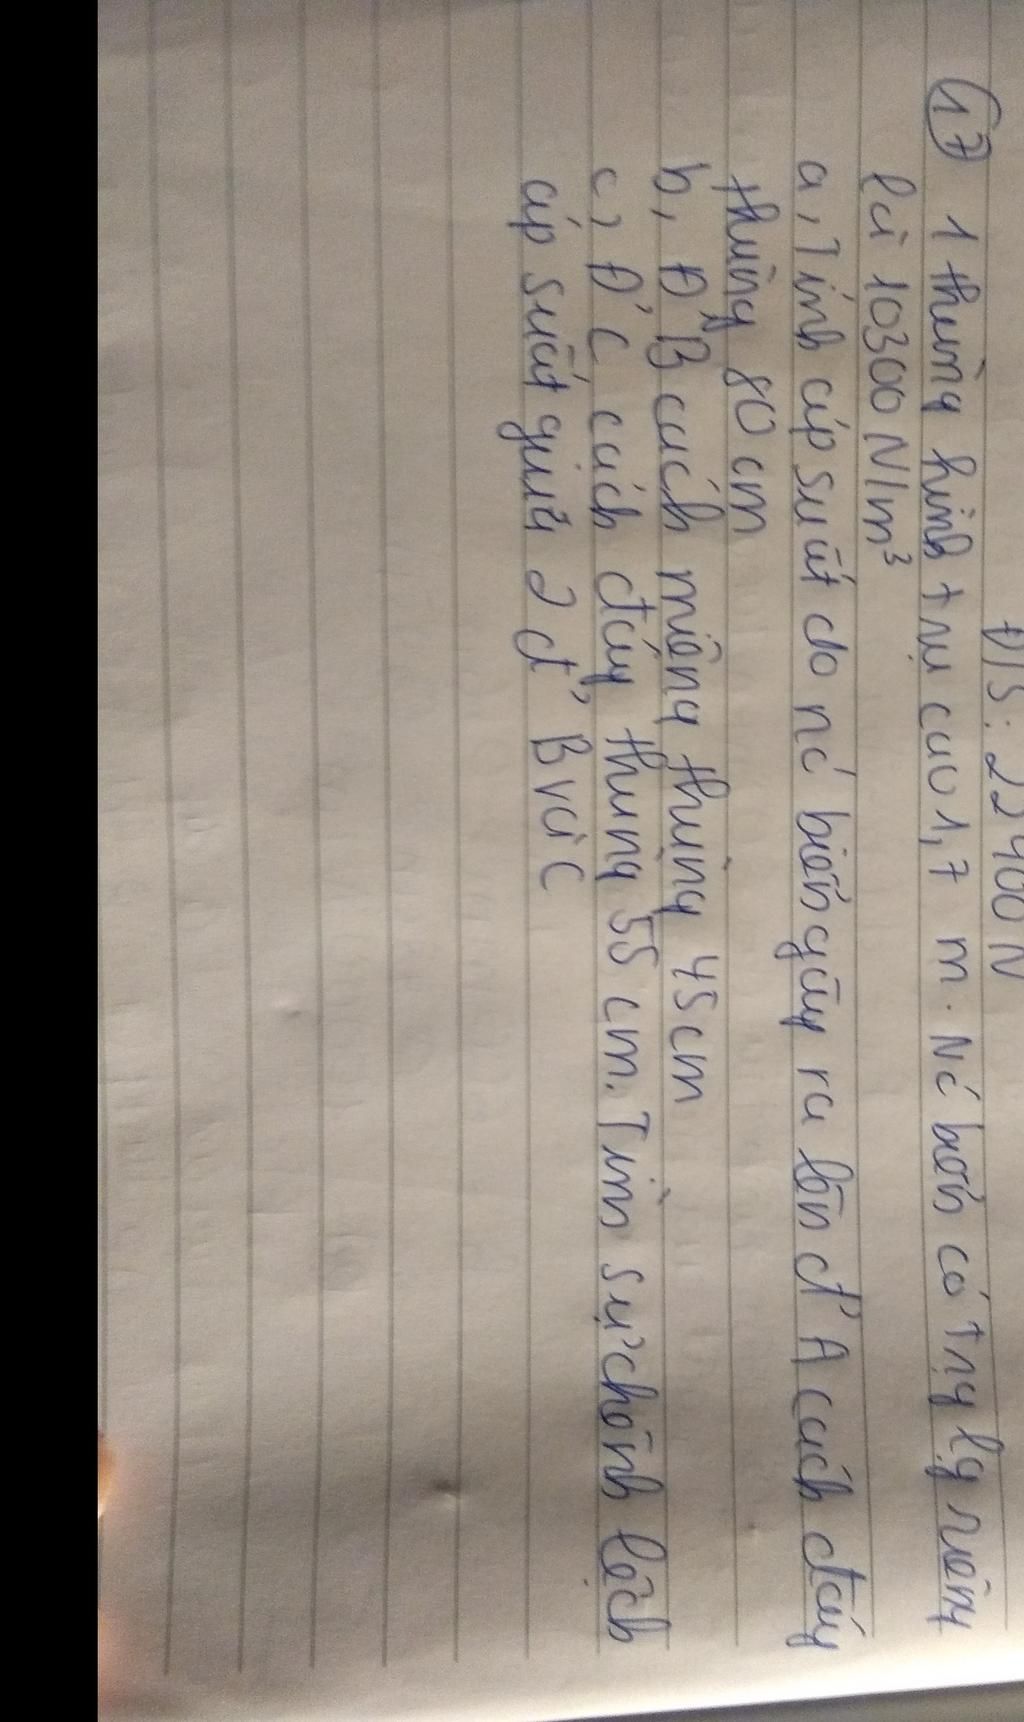 Đ/S: 22400 N
17 1 thùng hình trụ cao 1,7 m. Nc' biển có trlg lg riêng
là 10300 N/m³
a, Tính áp suất do nc' biển gây ra lên đ' A cách đáy
thùng 80 cm
b, Đ' B cách miệng thùng 45cm
c, Đ' C cách đáy thùng 55 cm. Tính sự chênh lệch
áp suất giữa 2 đ' B và C